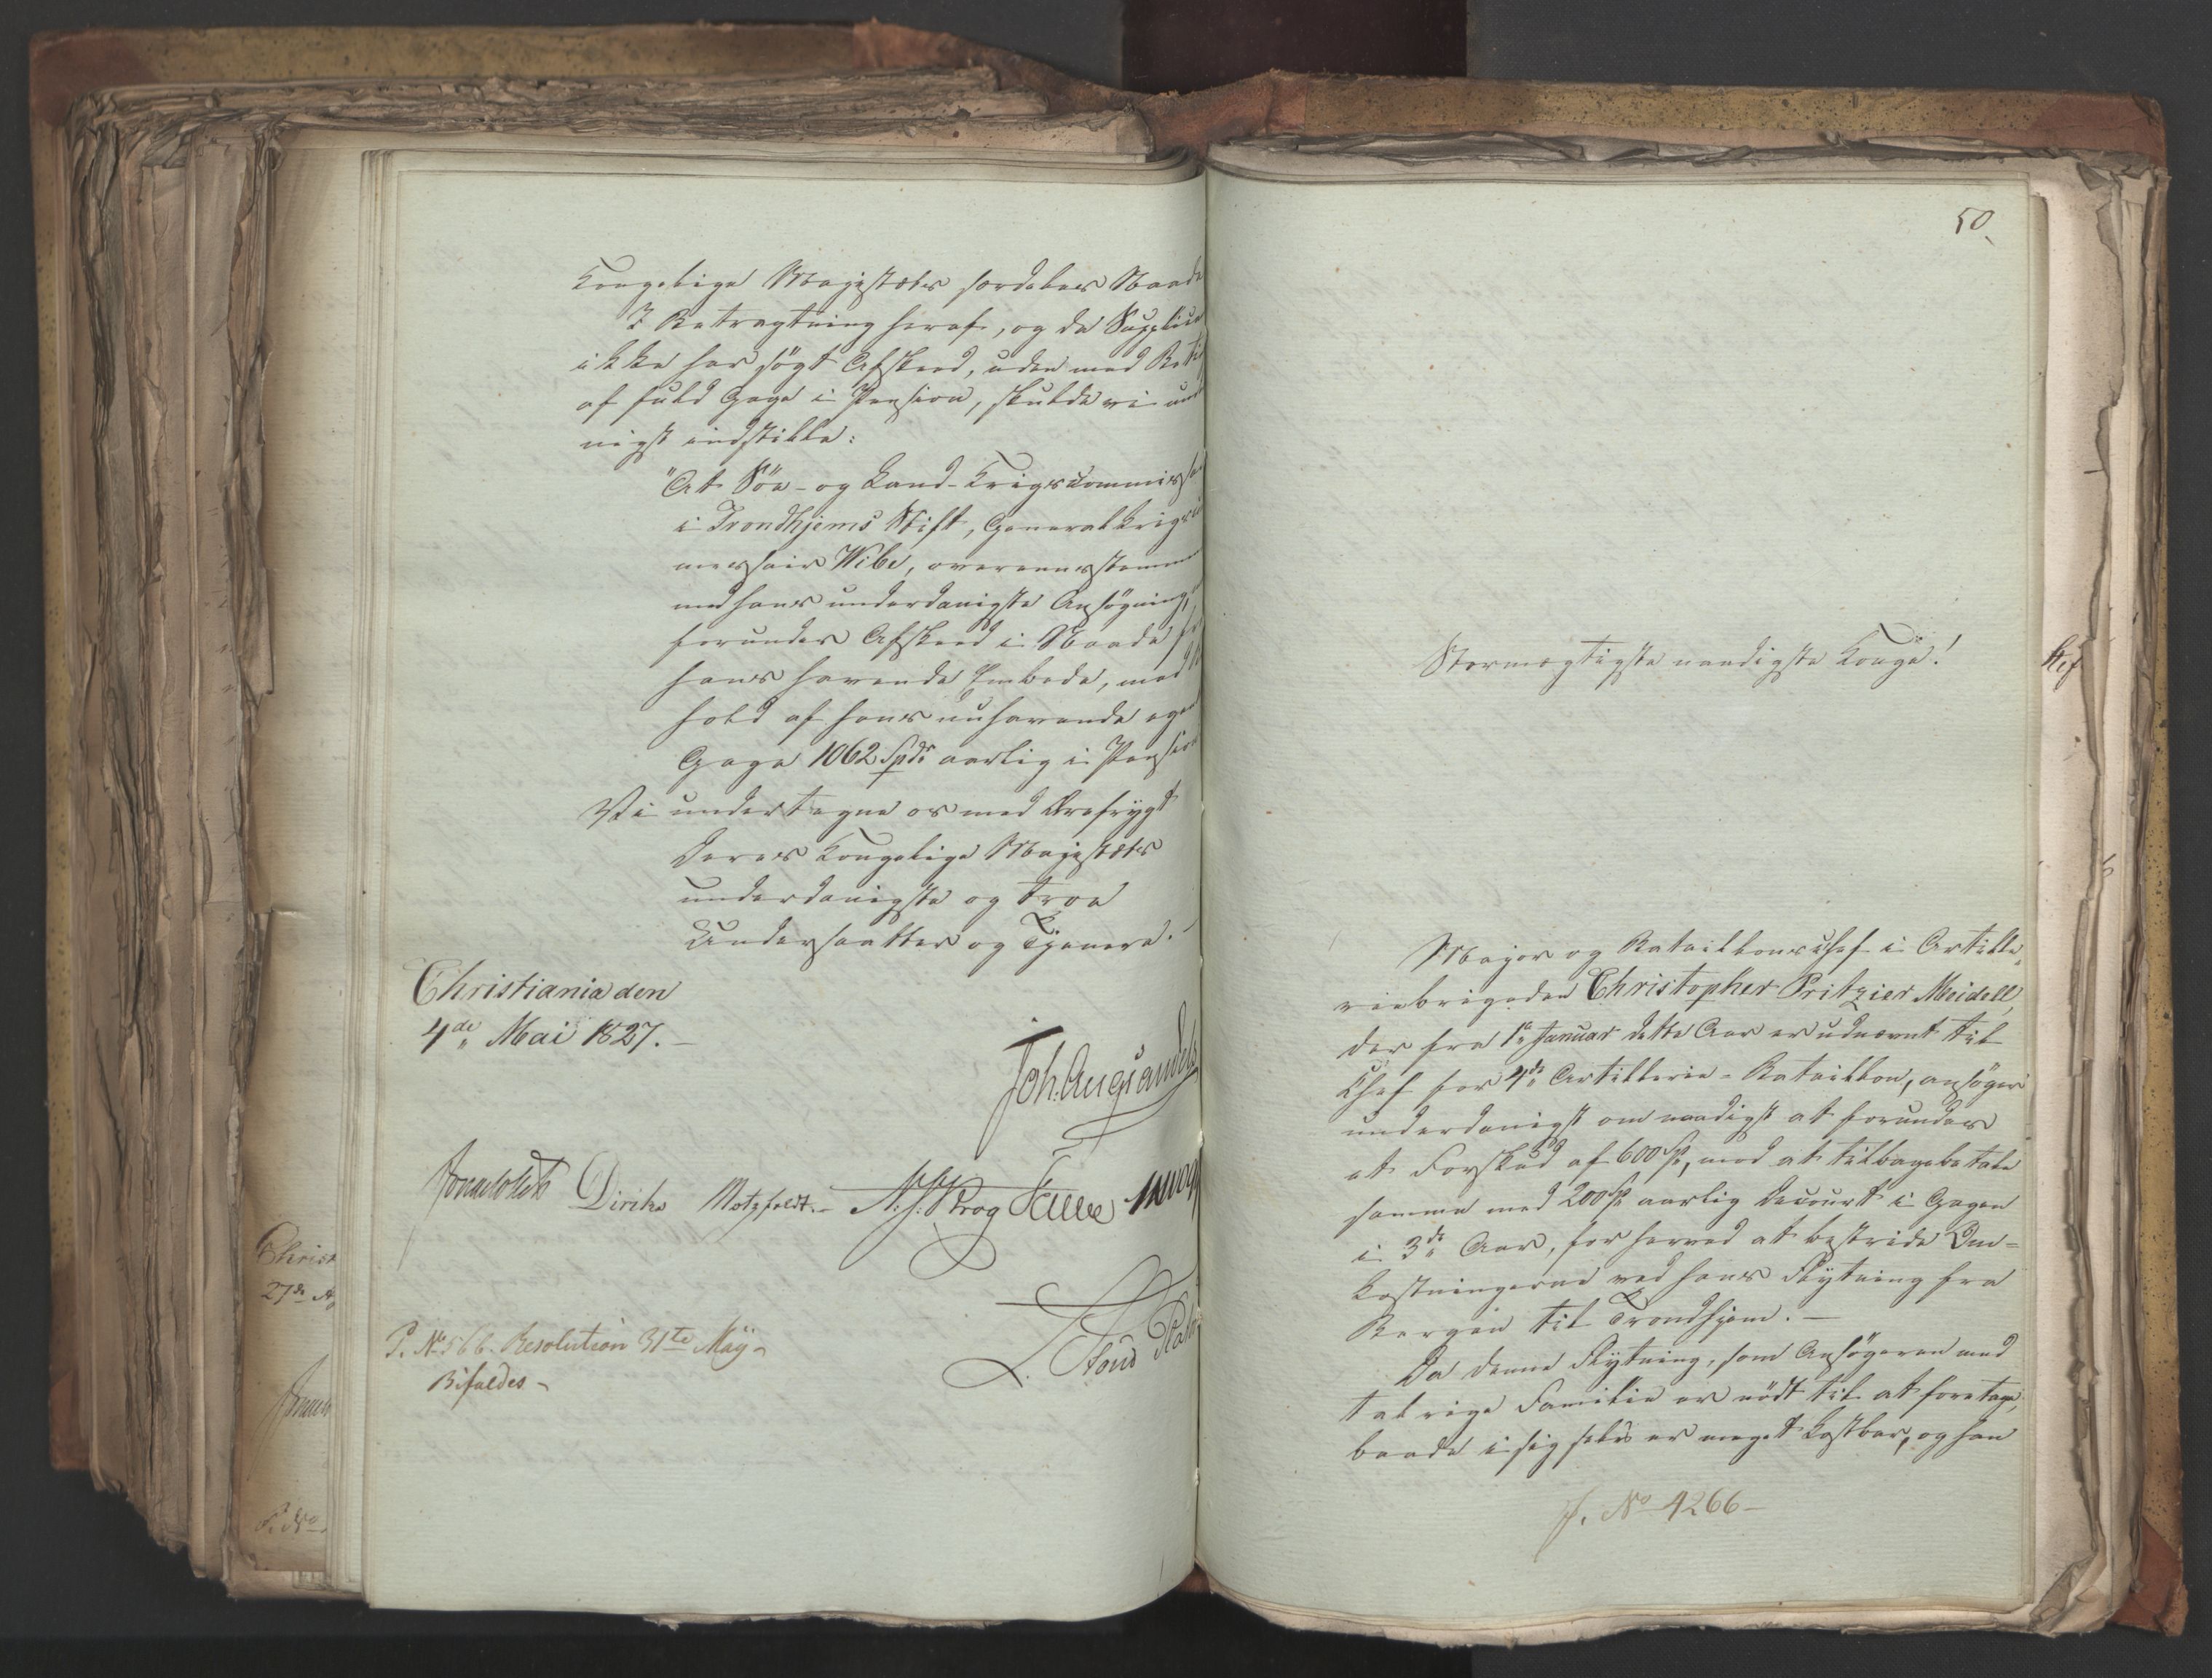 Kongelige Majestæts særdeles Naade
I Betragtning heraf, og da Supplican
ikke har søgt Afskeed, uden med
af fuld Gage i Pension, skulde vi un
nigst indstille:
"At Söe- og Land-Krigscommissa
i Trondhjems Stift, Generalkrigsco
missair Wibe, overeensstemm
med hans underdanigste Ansøgning,
forundes Afskeed i Naade fra
hans havende Embede, med
hold af hans nuhavende egen
Gage 1062 Spdr aarlig i Pension
Vi undertegne os med Ærefrygt
Deres Kongelige Majestæts
underdanigste og troe
Undersaatter og Tjenere. -
Christiania den
4de Mai 1827. -
Joh. Aug. Sandels
Jonas Collett Diriks Motzfeldt. - N. J. Krog Fasting
L. Stoud Platou
P. No 566. Resolution 31te Maÿ -
Bifaldes -
Christ
27de A
P. No
50.
Stormægtigste naadigste Konge!
Major og Bataillonschef i Artille
riebrigaden Christopher Pritzier Meidell,
der fra 1e Januar dette Aar er udnævnt til
Chef for 4de Artillerie-Bataillon, ansøger
underdanigst om naadigst at forundes
et Forskud af 600 Sp, mod at tilbagebetale
samme med 200 Sp aarlig Decourt i Gagen
i 3de Aar, for herved at bestride Om=
kostningerne ved hans Flytning fra
Bergen til Trondhjem. -
Da denne Flytning, som Ansøgeren med
talrige Familie er nödt til at foretage,
baade i sig selv er meget kostbar, og han
J. No 4266 -